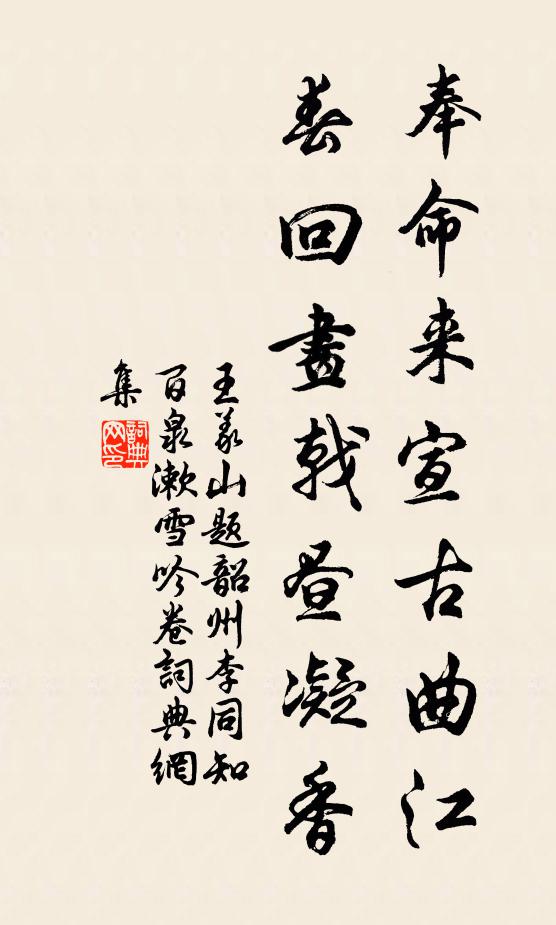 奉命来宣古曲江
春回畫戟昼凝香
王義山題韶州李同知
百泉漱雪吟卷詞典網
集
詞典網印